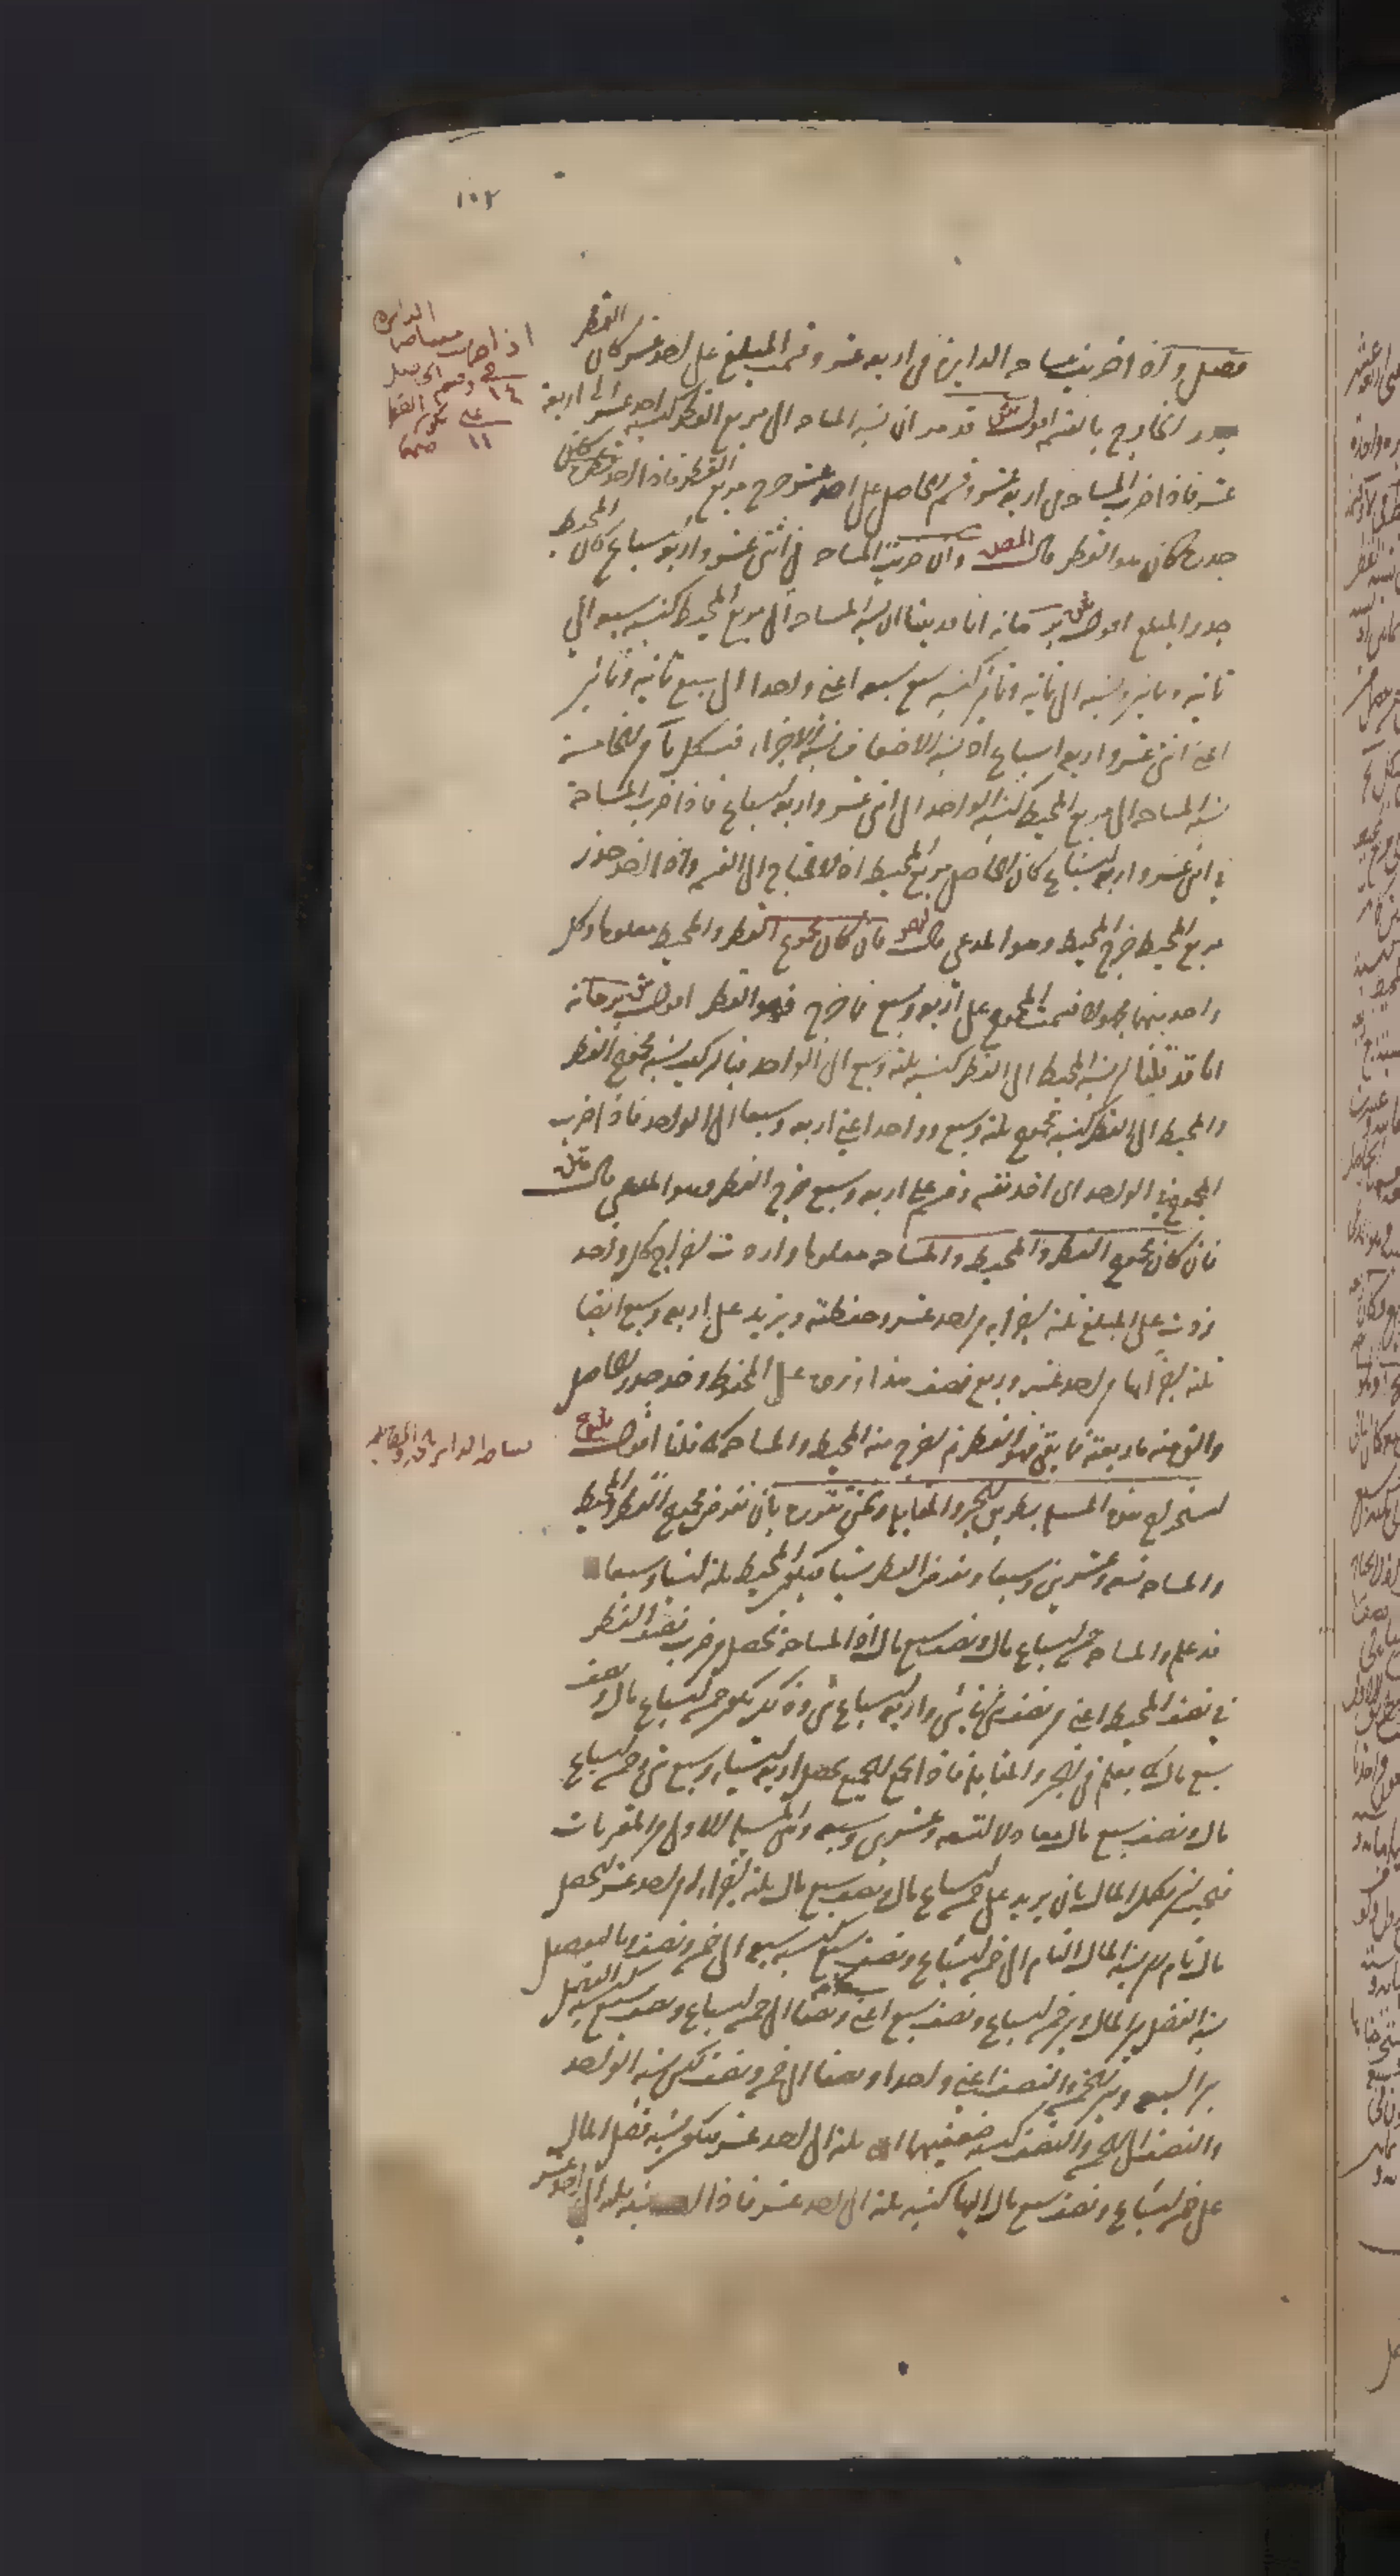 ١٠٢
فصل واذا ضربت مساحه الدايرة فى اربعه عشر وقسمت المبلغ على احد عشر كان القطر
جذر الخارج بالقسمه اقول قد مر ان نسبه المساحه الى مربع القطر كنسبه احد عشر الى اربعة
عشر فاذا ضرب المساحه فى اربعه عشر وقسم الحاصل على احد عشر خرج مربع القطر فاذا اخذ
جذره كان هو القطر قال المص وان ضربت المساحه فى اثنى عشر واربعه اسباع كان المحيط
جذر المبلغ اقول برهانه انا قد بينا ان نسبه المساحه الى مربع المحيط كنسبه سبعه الى
ثمانيه وثمانين ونسبه الى ثمانيه وثمانين كنسبه سبع سبعه اعنى واحدا الى سبع ثمانيه وثمانين
اعنى اثنى عشر واربعه اسباع اذ نسبه الاضعاف نسبه الاجزاء
نسبه المساحه الى مربع المحيط كنسبه الواحد الى اثنى عشر واربعه اسباع فاذا ضرب المساحة
فى اثنى عشر واربعه اسباع كان الحاصل مربع المحيط اذ لا يحتاج الى القسمه واذا اخذ جذر
مربع المحيط خرج المحيط وهو المدعى قال فان كان مجموع القطر والمحيط معلوما وكل
واحد منهما مجهولا قسمت المجموع على اربعه وسبع فما خرج فهو القطر اقول برهانه
انا قد قلنا ان نسبه المحيط الى القطر كنسبه ثلثه وسبع الى الواحد فبالتركيب نسبه مجموع القطر
والمحيط الى القطر كنسبه مجموع ثلثه وسبع وواحد اعنى اربعه وسبعا الى الواحد فاذا ضرب
المجموع فى الواحد اى اخذ نفسه وقسم على اربعه وسبع خرج القطر وهو المدعى قال
فان كان مجموع القطر والمحيط والمساحه معلوما واردت اخراج كل واحد
زدت على المبلغ ثلثه اجزاء من احد عشر وحفظته ويزيد على اربعه وسبع ايضا
ثلثه اجزائها من احد عشر وربع نصف هذا وزده على المحفوظ وخذ جذر الحاصل
والق منه ما ربعته فما بقى فهو القطر ثم يخرج منه المحيط والمساحه كما قلنا اقول
استخراج هذه المسئله بطريق الجبر والمقابله بان نفرض مجموع القطر والمحيط
والمساحه تسعه وعشرين وسبعا ونفرض القطر شيئا فيكون المحيط ثلثه اشياء وسبعا
قد علم والمساحه خمسه اسباع مال ونصف سبع مال اذ المساحه تحصل من ضرب نصف القطر
فى نصف المحيط اعنى من نصف شئ فى شئ واربعه اسباع شئ وذلك يكون خمسه اسباع مال ونصف
سبع مال كما يعلم فى الجبر والمقابله فاذا جمع الجميع يحصل اربعه اشياء وسبع شئ وخمسه اسباع
مال ونصف سبع مال معادلا لتسعه وعشرين وسبع وهى المسئله الاولى من المقترنات
فيجب ان نكمل المال بان يزيد على خمسه اسباع مال ونصف سبع مال ثلثه اجزاء من احد عشر ليحصل
مال تام لان نسبه المال التام الى خمسه اسباع ونصف سبع كنسبه سبعه الى خمسه ونصف وبالتفصيل
نسبه الفضل بين المال وبين خمسه اسباع ونصف سبع اعنى ونصفا الى خمسه اسباع ونصف سبع كنسبه الفضل
بين السبعه وبين الخمسه والنصف اعنى واحدا ونصفا الى خمسه ونصف لكن نسبه الواحد
والنصف الى الخمسه والنصف كنسبه ضعفيهما اى ثلثه الى احد عشر فيكون نسبه فضل المال
على خمسه اسباع ونصف سبع مال اليها كنسبه ثلثه الى احد عشر فاذا نسبه ثلثه الى احد عشر
اذا ضرب مساحه الدايره
فى ١٤ وقسم الحاصل
على ١١
مساحه الدايره بالجبر والمقابله